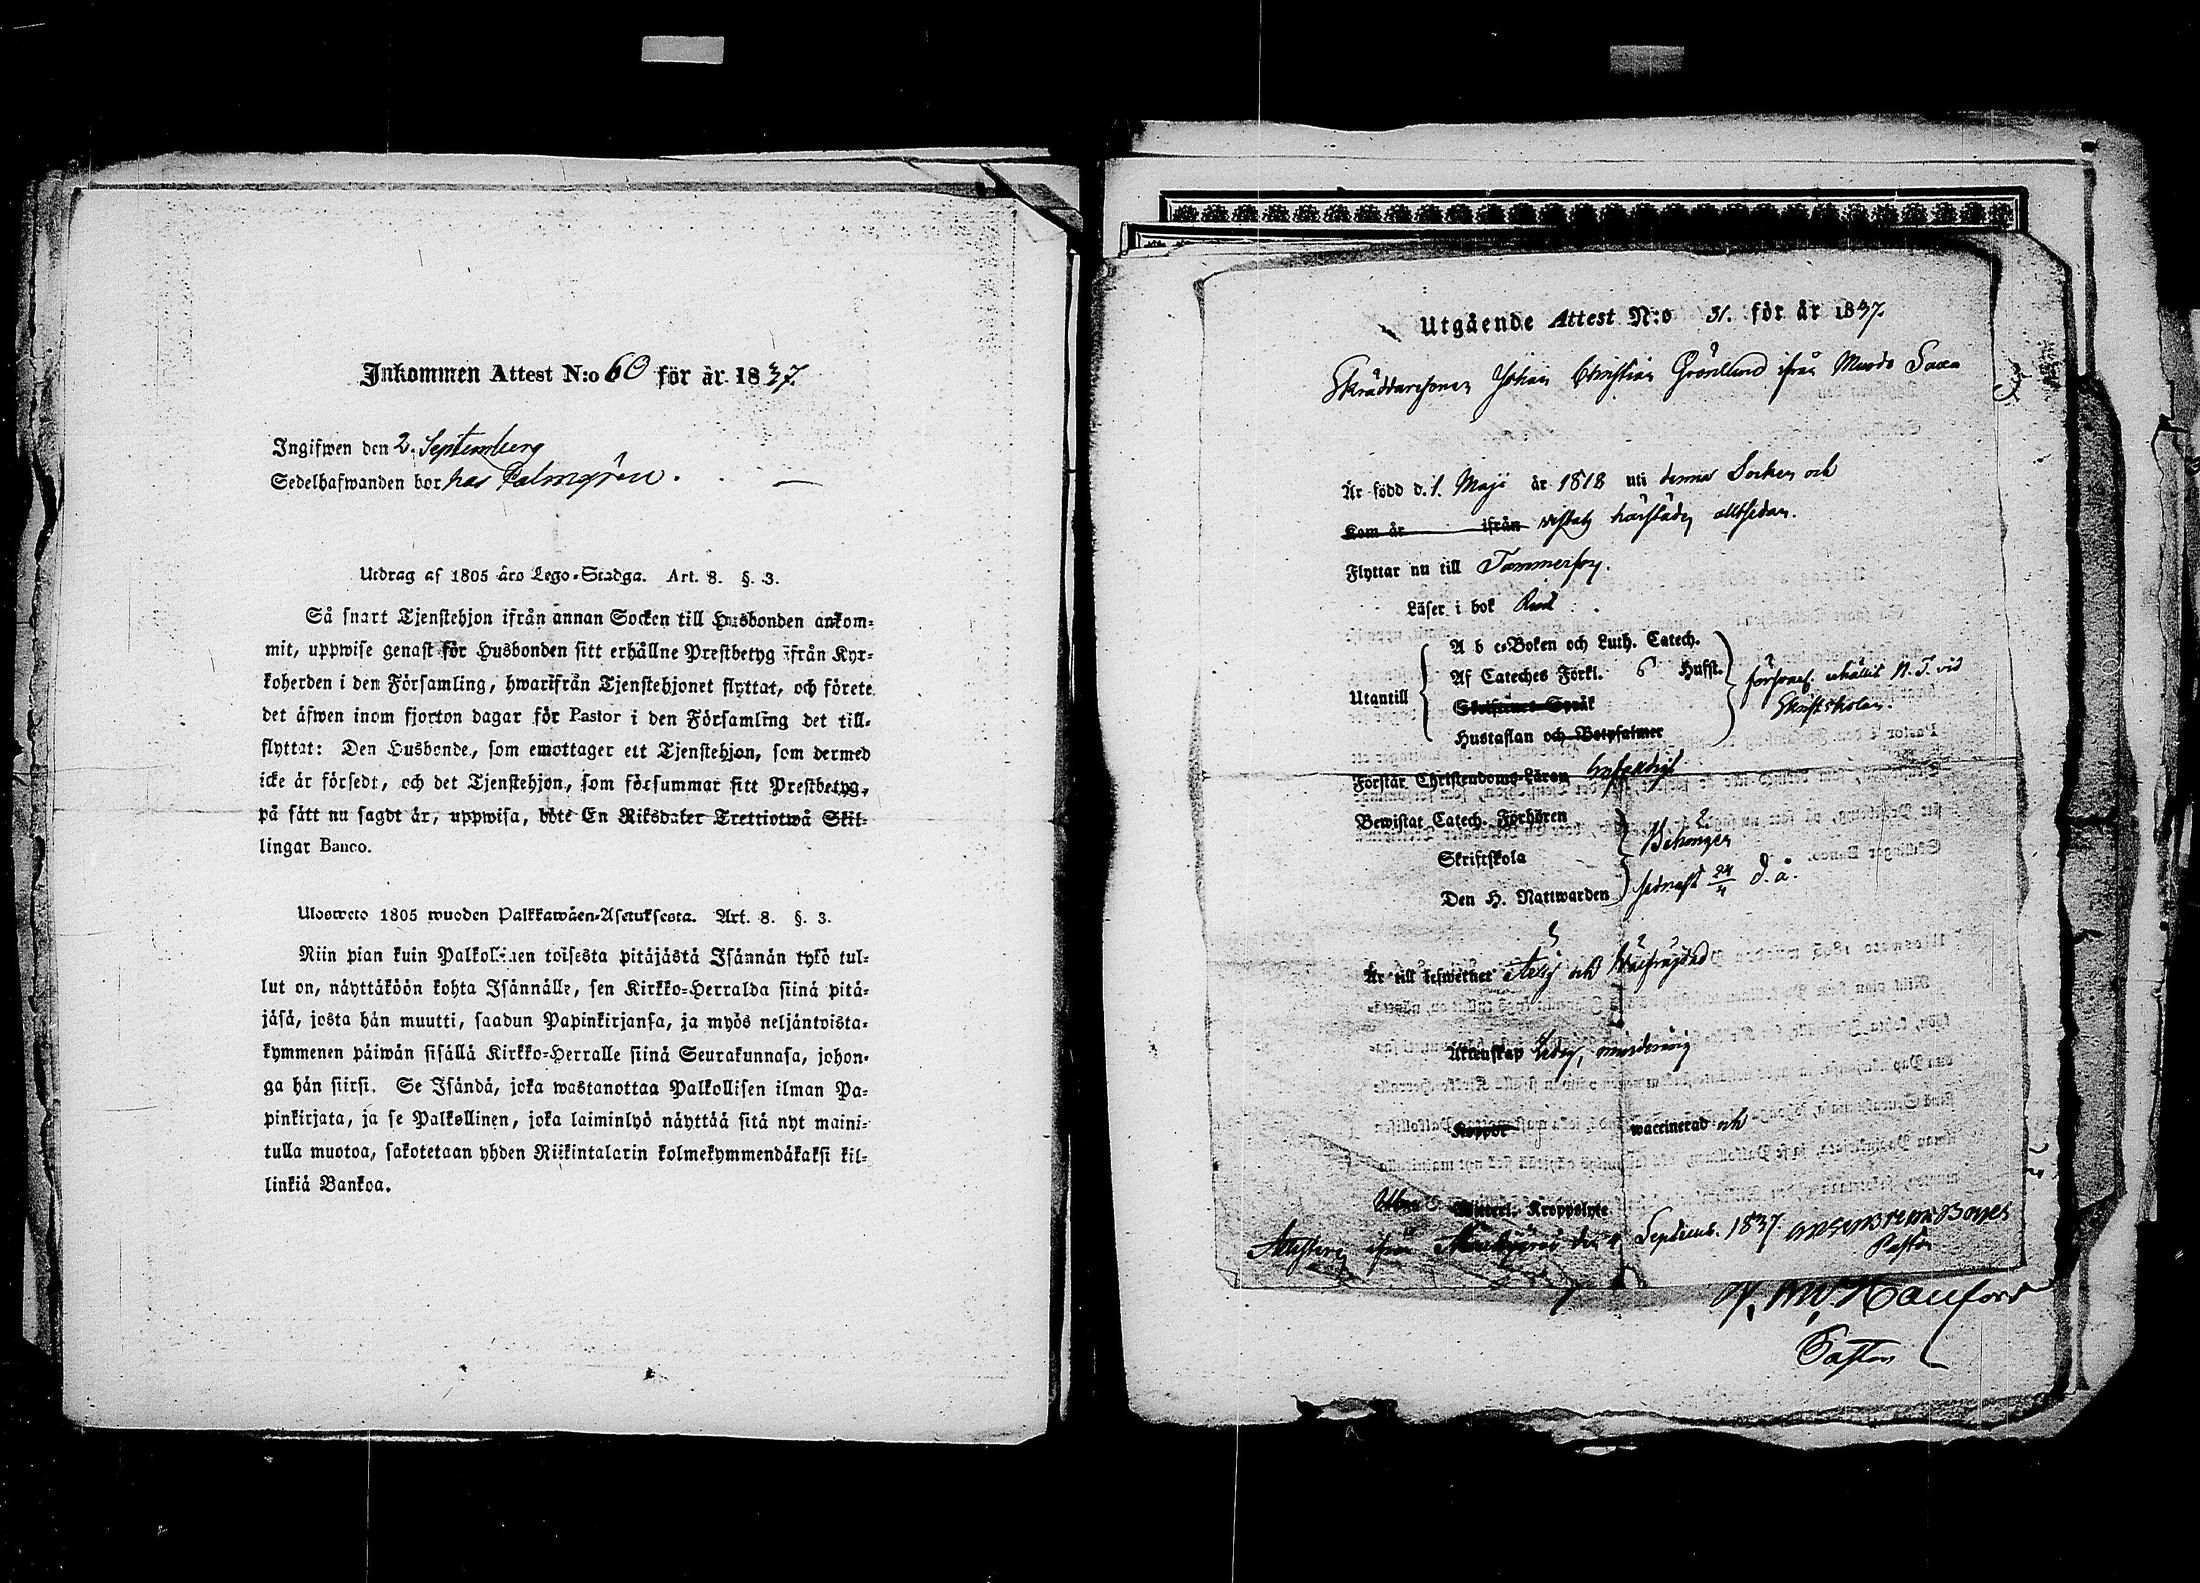 Inkommen Attest N:o 60 för år 1837.
Ingifwen den 2. September
Sedelhafwanden bor hos Palmgrén.
Utdrag af 1805 års Lego-Stadga. Art. 8. §. 3.
Så snart Tjenstehjon ifrån annan Socken till Husbonden ankom-
mit, uppwise genast för Husbonden sitt erhållne Prestbetyg ifrån Kyr-
koherden i den Församling, hwarifrån Tjenstehjonet flyttat, och förete
det äfwen inom fjorton dagar för Pastor i den Församling det till-
flyttat: Den Husbonde, som emottager ett Tjenstehjon, som dermed
icke är försedt, och det Tjenstehjon, som försummar sitt Prestbetyg,
på sätt nu sagdt är, uppwisa, böte En Riksdaler Trettiotwå Skil-
lingar Banco.
Ulosweto 1805 wuoden Palkkawäen-Asetuksesta. Art. 8. §. 3.
Niin pian kuin Palkollinen toisesta pitäjästä Isännän tykö tul-
lut on, näyttäköön kohta Isännälle, sen Kirkko-Herralda siinä pitä-
jäsä, josta hän muutti, saadun Papinkirjansa, ja myös neljäntoista-
kymmenen päiwän sisällä Kirkko-Herralle siinä Seurakunnasa, johon-
ga hän siirsi. Se Isändä, joka wastanottaa Palkollisen ilman Pa-
pinkirjata, ja se Palkollinen, joka laiminlyö näyttää sitä nyt maini-
tulla muotoa, sakotetaan yhden Riikintalarin kolmekymmendäkaksi kil-
linkiä Bankoa.
Utgående Attest N:o 31. för år 1837.
Skräddaresonen Johan Christian Grönlund ifrån
Är född d. 1. Maji år 1818 uti denna Socken och
Kom år ifrån wistats härstädes alltsedan.
Flyttar nu till Tammerfors.
Läser i bok
A b c-Boken och Luth. Catech.
Af Cateches Förkl. 6 Hufst.
Utantill
Skriftenes Språk
Hustaflan och Botpsalmer
erhållit N. T. vid
Skriftskolan.
Förstår Christendoms-Läran
Bewistat Catech. Förhören
Skriftskola
Den H. Nattwarden sednast 24/4 d. å.
Är till lefwernet och
Äktenskap ledig,
Koppor waccinerad och
Utan Witterl. Kroppslyte.
Attesterar ifrån den 4 Septemb. 1837.
Pastor
Pastor